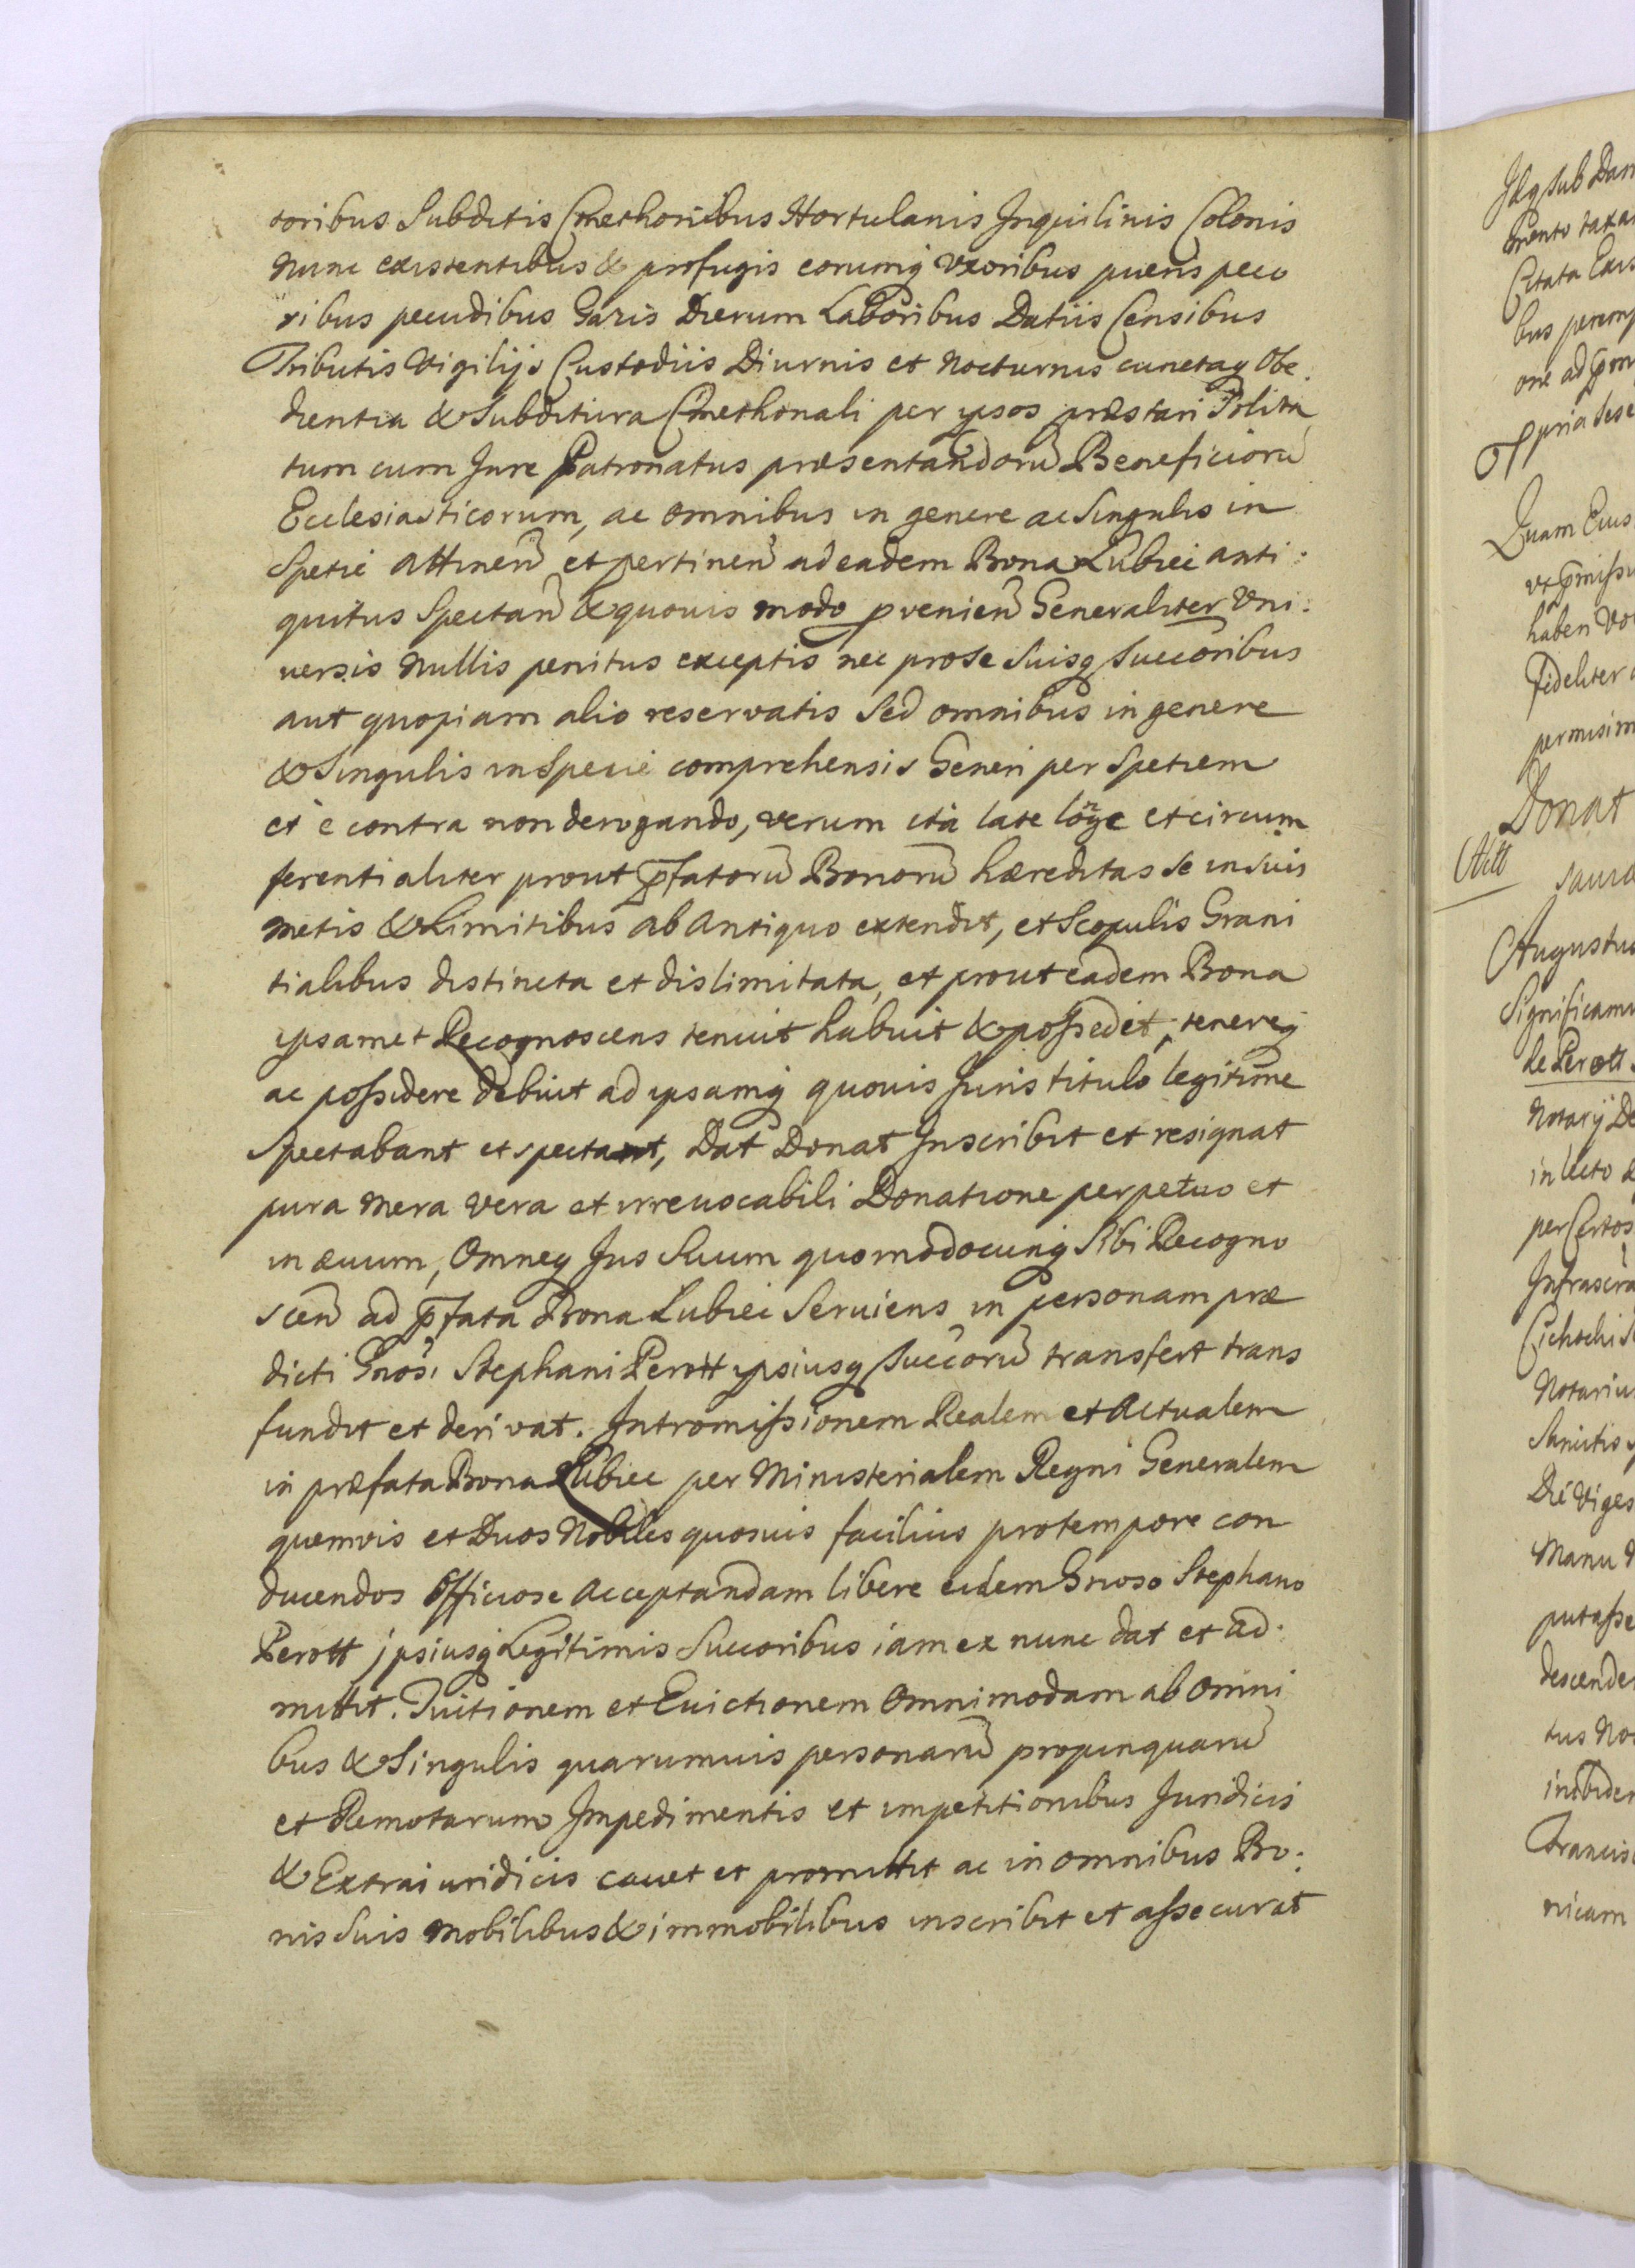 toribus Subditis Cmethonibus Hortulanis Inquilinis Colonis
nunc existentibus & profugis eorumq Vxoribus pueris peco
ribus pecudibus Gazis Dierum Laboribus Datiis Censibus
Tributis Vigilijs Custodiis Diurnis et Nocturnis cunctaq Obe
dientia & Subditiva Cmethonali per ipsos præstari Solita
tum cum Jure Patronatus præsentandorū Beneficiorū
Ecclesiasticorum, ac omnibus in genere ac Singulis in
Spetie attinen̄ et pertinen̄ ad eadem Bona Lubiec anti:
quitus Spectan̄ & quovis modo pvenien̄ Generaliter Vni:
versis Nullis penitus exceptis nec pro se Suisq Succoribus
aut quopiam alio reservatis Sed omnibus in genere
& Singulis in Specie comprehensis Generi per Spetiem
et è contra non derogando, verum ità late lōge et circum
ferentialiter prout p̄fatorū Bonorū hæreditas se in suis
metis & Limitibus ab Antiquo extendit, et Scopulis Grani
tialibus distincta et dislimitata, et prout eadem Bona
ipsamet Recognoscens tenuit habuit & possedit, tenereq
ac possidere debuit ad ipsamq quovis Juris titulo legitime
Spectabant et spectant, Dat Donat Inscribit et resignat
pura mera vera et irreuocabili Donatione perpetuo et
in ævum, Omneq Jus Suum quomodocunq Sibi Recogno
scen̄ ad p̄fata Bona Lubiec Serviens in personam præ
dicti Gnosi Stephani Perott ipsiusq Succorū transfert trans
fundit et derivat. Intromissionem Realem et Actualem
in præfata Bona Lubiec per Ministerialem Regni Generalem
quemvis et Duos Nobiles quosuis facilius pro tempore con
ducendos Officiose Acceptandam libere eidem Gnoso Stephano
Perott ipsiusq Legitimis Succoribus iam ex nunc dat et ad:
mittit. Tuitionem et Euictionem Omnimodam ab omni
bus & Singulis quarumuis personarū propinquarū
et Remotarum Impedimentis et impetitionibus Juridicis
& Extraiuridicis cauet et promittit ac in omnibus Bo:
nis Suis mobilibus & immobilibus inscribit et assecurat
Quam Eius
Fideliter
Donat
Augustus
Significamus
de Perott
Notarij De
in lecto
Notarius
Manu